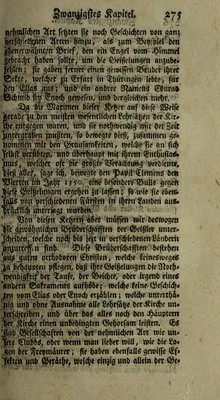 Zwanzigstes Kapitel. 275
nehmlichen Art setzten sie noch Geschichten von ganz
verschiednen Arten hinzu, als zum Beyspiel den
obenerwähnten Brief, den ein Engel vom Himmel
gebracht haben sollte, um die Geißelungen anzube-
fehlen; sie gaben ferner einen gewissen Beude ihrer
Sekte, welcher zu Erfurt in Thüringen lebte, für
den Elias aus; und ein andrer Namens Conrad
Schmidt sey Enoch gewesen, und dergleichen mehr.
Da die Maximen dieser Ketzer auf diese Weise
gerade zu den meisten wesentlichen Lehrsätzen der Kir-
che entgegen waren, und sie nothwendig mit der Zeit
untergraben mußten, so bewegte dies, zusammen ge-
nommen mit den Grausamkeiten, welche sie an sich
selbst verübten, und überhaupt mit ihrem Enthusias-
mus, welcher oft die größte Verachtung verdiente,
dies alles, sage ich, bewegte den Papst Clemens den
Vierten im Jahr 1350. eine besondre Bulle gegen
diese Geißelungen ergehen zu lassen; so wie sie eben-
falls von verschiedenen Fürsten in ihren Landen aus-
drücklich untersagt wurden.
Von diesen Ketzern aber müssen wir deswegen
die gewöhnlichen Brüderschaften der Geißler unter-
scheiden, welche noch bis jetzt in verschiednen Ländern
anzutreffen sind. Diese Brüderschaften bestehen
aus guten orthodoxen Christen, welche keinesweges
zu behaupten pflegen, daß ihre Geißelungen die Noth-
wendigkeit der Taufe, der Beichte, oder irgend eines
andern Sakraments aufhöbe; welche keine Geschich-
ten vom Elias oder Enoch erzählen; welche unterthä-
nig und ohne Ausnahme alle Lehrsätze der Kirche un-
terschreiben, und über das alles noch den Häuptern
der Kirche einen unbedingten Gehorsam leisten. Es
sind Gesellschaften von der nehmlichen Art wie un-
sere Clubbs, oder wenn man lieber will, wie die Lo-
gen der Freymäurer; sie haben ebenfalls gewisse Ef-
fekten und Geräthe, welche einzig und allein der Ge-